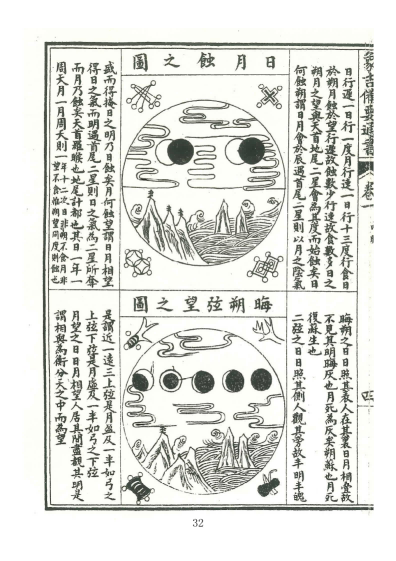 象吉備要通書
卷一
日月蝕之圖
日行遲一日行一度月行速一日行十三度行食日
於朔月蝕於望行遲故蝕數少行速故食數多日之
朔月之望與天首地尾二星會為其度而始蝕矣日
何蝕朔謂日月會於辰遇首尾二星則以月之陰氣
盛而得掩日之明乃日蝕矣月何蝕望謂日月相望
得日之氣而明遇首尾二星則日之氣為二星所奪
而月乃蝕矣天首羅睺也地尾計都也其日一年一
周天月一月周天則一年十二次日非朔不食月非
望不食惟朔望同度則蝕也
晦朔弦望之圖
晦朔之日日照其表人在其裏日月相會故
不見其明晦灰也月死為灰矣朔蘇也月死
復蘇生也
二弦之日日照其側人觀其旁故半明半魄
是謂近一遠三上弦是月盈及一半如弓之
上弦下弦是月虧及一半如弓之下弦
月望之日日月相望人居其間盡觀其明是
謂相與為衡分天之中而為望
四
32